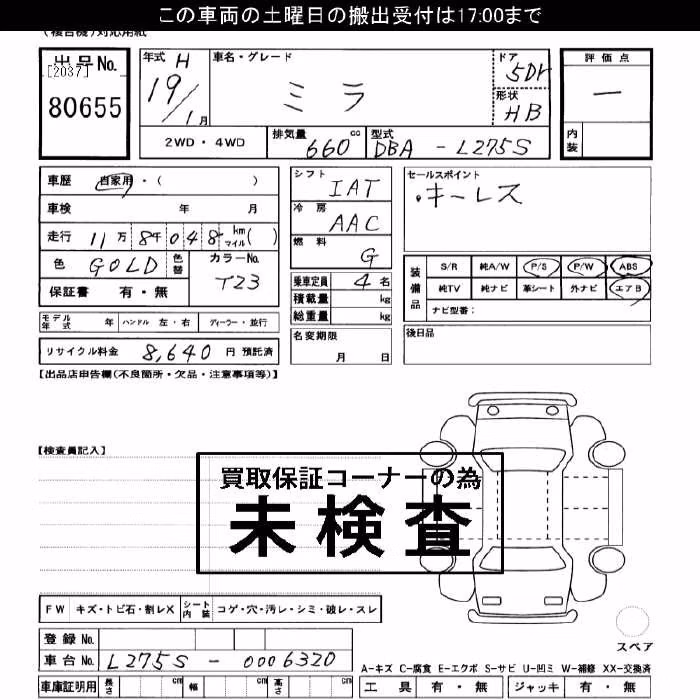 この車両の土曜日の搬出受付は17:00まで
(複合機)対応用紙
出品No. [2037] 80655
年式 H 19/1月
車名・グレード ミラ
ドア 5Dr
形状 HB
評価点 ー
内装
2WD・4WD 排気量 660 cc 型式 DBA - L275S
車歴 自家用・( )
車検 年 月
走行 11万 8千 048 km マイル( )
色 GOLD 色替 カラーNo. T23
保証書 有・無
シフト IAT
冷房 AAC
燃料 G
乗車定員 4名
積載量 kg
総重量 kg
セールスポイント
・キーレス
装備品 S/R 純A/W P/S P/W ABS
純TV 純ナビ 革シート 外ナビ エアB
ナビ型番:
モデル年式 年 ハンドル 左・右 ディーラー・並行
名変期限 月 日
後日品
リサイクル料金 8,640 円 預託済
【出品店申告欄(不良箇所・欠品・注意事項等)】
【検査員記入】
買取保証コーナーの為
未検査
FW キズ・トビ石・割レX シート内装 コゲ・穴・汚レ・シミ・破レ・スレ
スペア
登録No.
車台No. L275S - 0006320
A-キズ C-腐食 E-エクボ S-サビ U-凹ミ W-補修 XX-交換済
車庫証明用 長さ cm 幅 cm 高さ cm 工具 有・無 ジャッキ 有・無